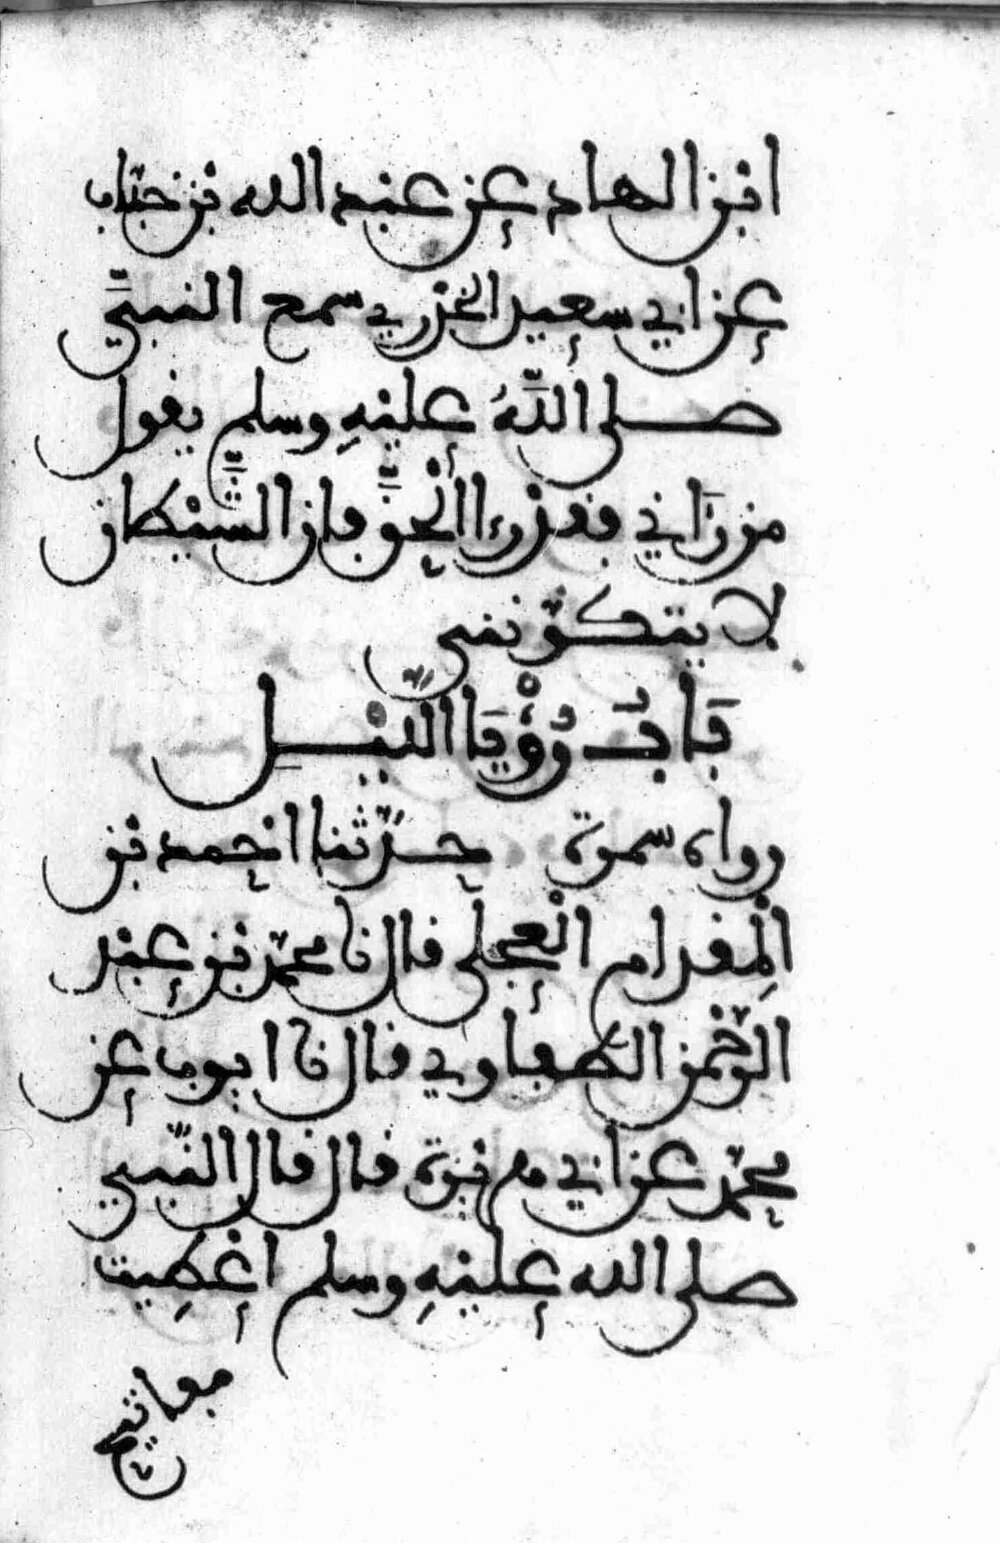 ابن الهاد عن عبد الله بن خباب
عن ابي سعيد الخدري سمع النبيَّ
صلى اللَّهُ عليهِ وسلم يقول
من رَاني فقد رءا الْحقَّ فان الشَّيْطان
لا يتكونني
بَابُ رُؤْيَا اللَّيْل
رواه سمرة حدَّثنا احمد بن
الْمِقدام الْعجلي قال نا محمد بن عبد
الرَّحْمن الطفاوي قال نا ايوب عن
محمد عن ابي هريرة قال قال النَّبي
صلى الله عليهِ وسلم اعْطِيت
مفاتيح